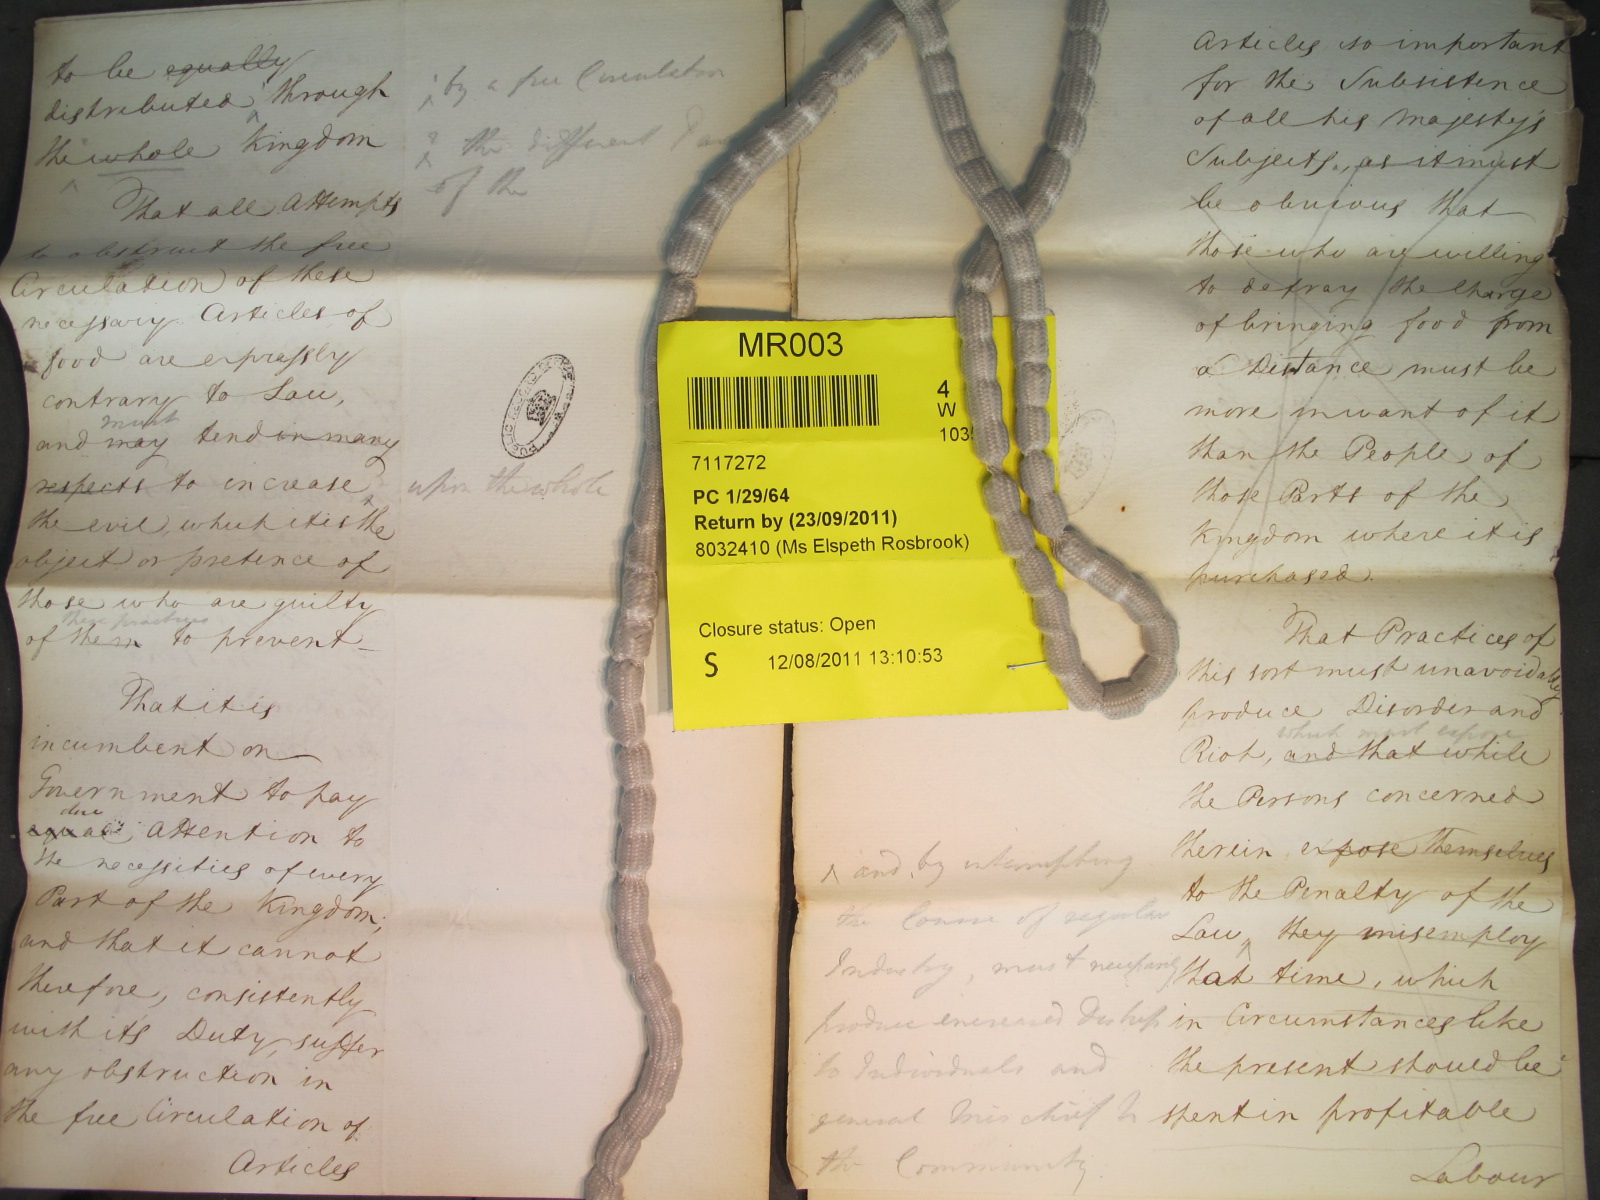 to be equally
distributed through
the whole Kingdom
That all Attempts
to obstruct the free
Circulation of these
necessary Articles of
food are expressly
contrary to Law,
must
and may tend in many
respects to increase
the evil, which it is the
object or pretence of
those who are guilty
these practices
of them to prevent
That it is
incumbent on
Government to pay
due
equal Attention to
the necessities of every
Part of the Kingdom;
and that it cannot
therefore, consistently
with its Duty, suffer
any obstruction in
the free Circulation of
Articles
by a free Circulation
the different
of the
upon the whole
MR003
4
W
103
7117272
PC 1/29/64
Return by (23/09/2011)
8032410 (Ms Elspeth Rosbrook)
Closure status: Open
S 12/08/2011 13:10:53
and, by interrupting
the Course of regular
Industry, must necessarily
produce increased
to Individuals and
general Mischief to
the Community.
Articles so important
for the Subsistence
of all his Majesty's
Subjects, as it must
be obvious that
those who are willing
to defray the Charge
of bringing food from
a Distance must be
more in want of it
than the People of
those Parts of the
Kingdom where it is
purchased.
That Practices of
this sort must unavoidably
produce Disorder and
which must expose
Riot, and that while
the Persons concerned
therein expose themselves
to the Penalty of the
Law, they misemploy
that time, which
in Circumstances like
the present should be
spent in profitable
Labour